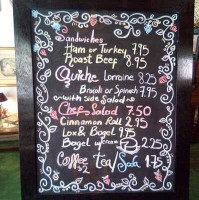 Sandwiches
Ham or Turkey 7.95
Roast Beef 8.95
Quiche Lorraine 8.25
Brocoli or Spinach 7.95
~with side Salad~
Chef Salad 7.50
Cinnamon Roll 2.95
Lox & Bagel 9.75
Bagel w/cream 2.25
Coffee tea/Soda 1.75